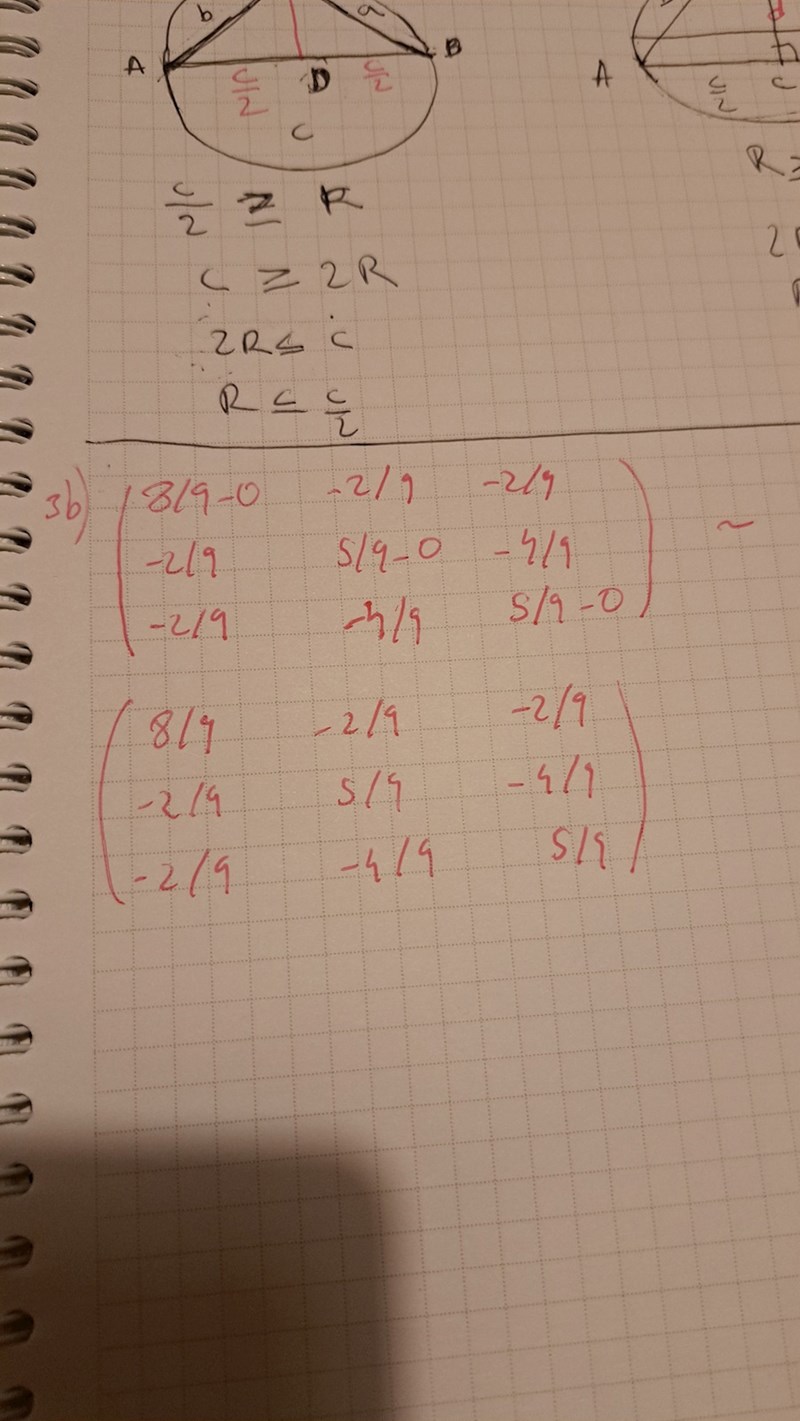 b a
A B A
c/2 D c/2 c/2 c
c
c/2 ≥ R R ≥
c ≥ 2R 2
2R ≤ c
R ≤ c/2
3b) ( 8/9-0 -2/9 -2/9 ) ~
-2/9 5/9-0 -4/9
-2/9 -4/9 5/9-0
( 8/9 -2/9 -2/9 )
-2/9 5/9 -4/9
-2/9 -4/9 5/9